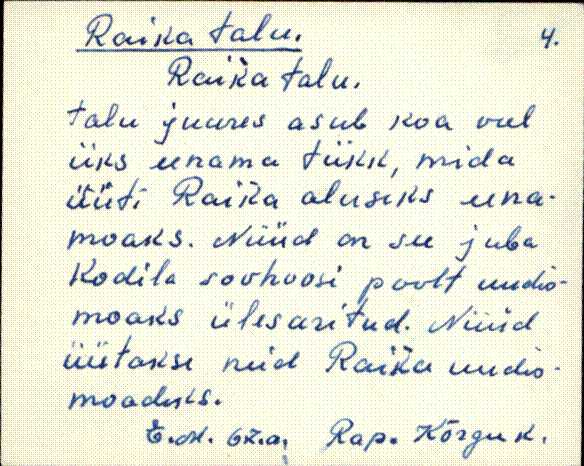 Raika talu.
4.
Raika talu.
talu juures asub koa veel
üks eenama tükk, mida
üüti Raika aluseks eena-
moaks. Nüüd on see juba
Kodila sovhoosi poolt uudis-
moaks ülesaritud. Nüüd
üütakse neid Raika uudis-
moadeks.
E.M. 67.a. Rap. Kõrgu k.